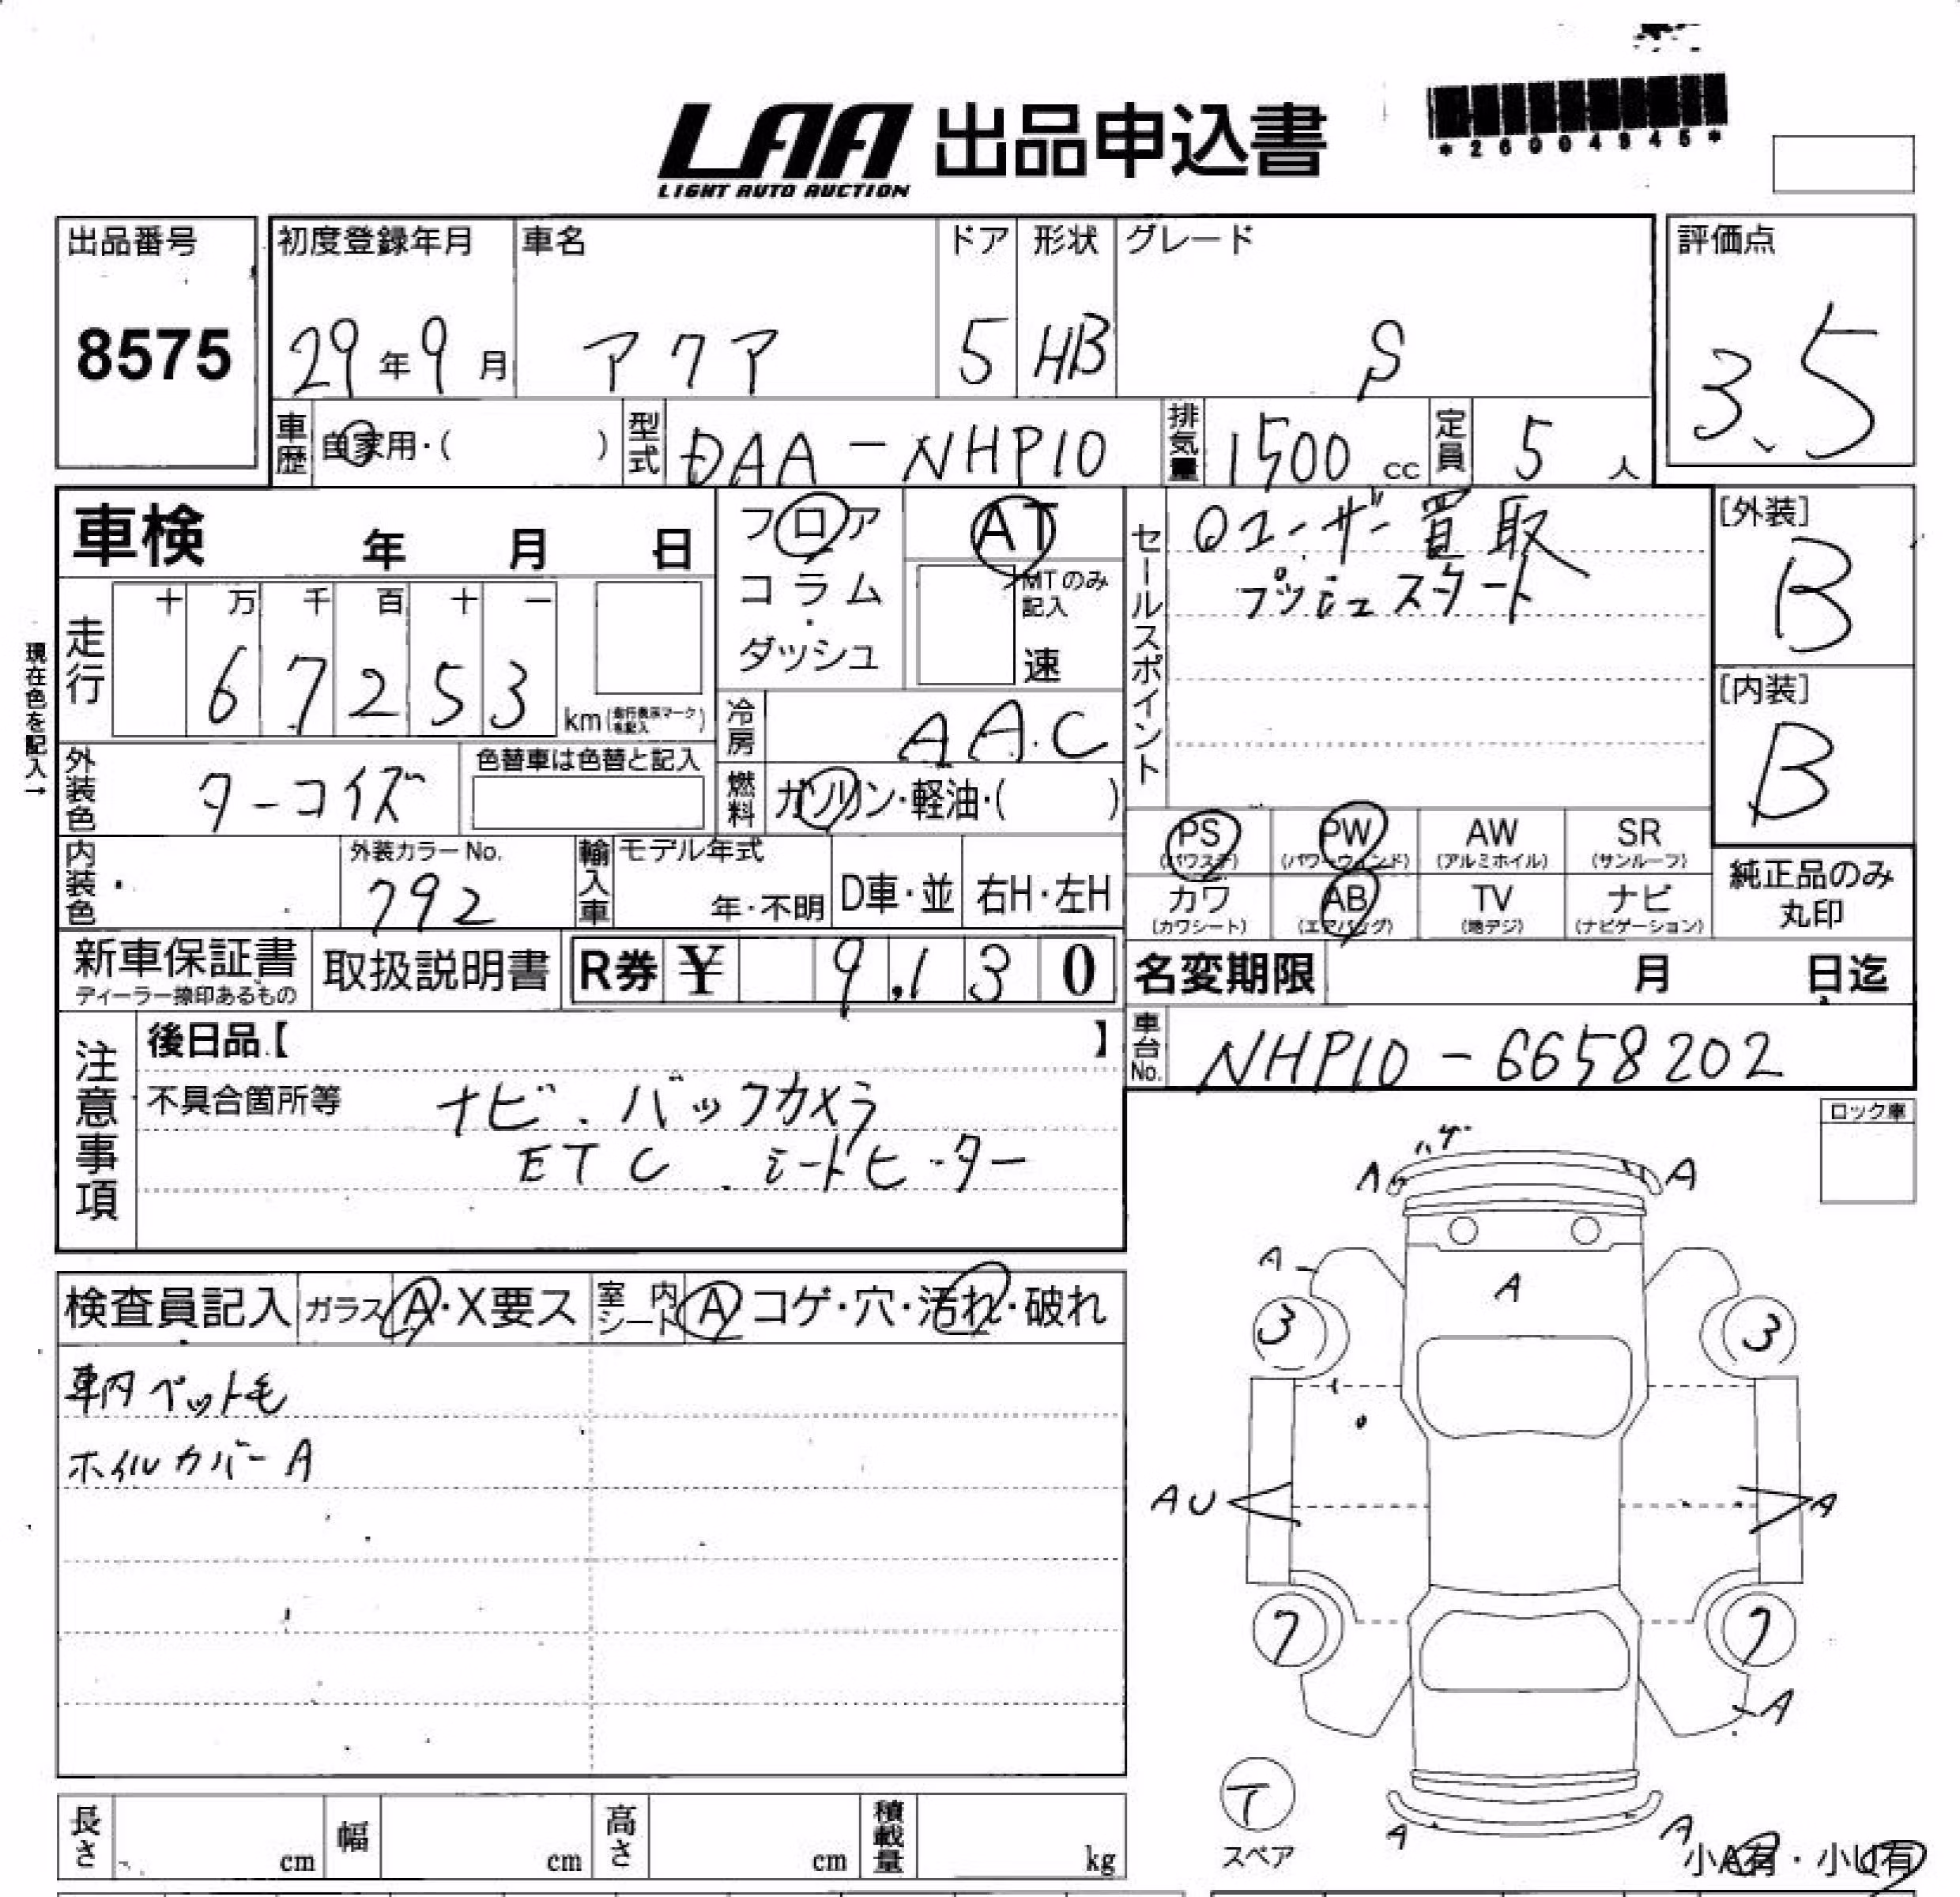 *26004945*
LAA 出品申込書
LIGHT AUTO AUCTION
出品番号
8575
初度登録年月
29年9月
車名
アクア
ドア
5
形状
HB
グレード
S
評価点
3.5
車歴 自家用・( )
型式 DAA-NHP10
排気量 1500 cc
定員 5 人
車検 年 月 日
フロア
コラム・
ダッシュ
AT
MTのみ記入
速
セールスポイント
○ユーザー買取
プッシュスタート
[外装]
B
[内装]
B
現在色を記入→
走行
十 万 千 百 十 一
6 7 2 5 3
km
冷房 AAC
外装色 ターコイズ
色替車は色替と記入
燃料 ガソリン・軽油・( )
PS (パワステ)
PW (パワーウィンド)
AW (アルミホイル)
SR (サンルーフ)
カワ (カワシート)
AB (エアバッグ)
TV (地デジ)
ナビ (ナビゲーション)
純正品のみ
丸印
内装色
外装カラーNo.
792
輸入車
モデル年式
年・不明
D車・並
右H・左H
新車保証書
ディーラー捺印あるもの
取扱説明書
R券 ¥ 9,130
名変期限 月 日迄
車台No. NHP10-6658202
注意事項
後日品【 】
不具合箇所等
ナビ.バックカメラ
ETC.シートヒーター
ロック車
検査員記入
ガラス A・X要ス
室内シート A コゲ・穴・汚れ・破れ
車内ペット毛
ホイルカバーA
バザ
A A
A A
3 3
AU A
7 7
A
T
スペア
A A
小A有・小U有
長さ cm
幅 cm
高さ cm
積載量 kg